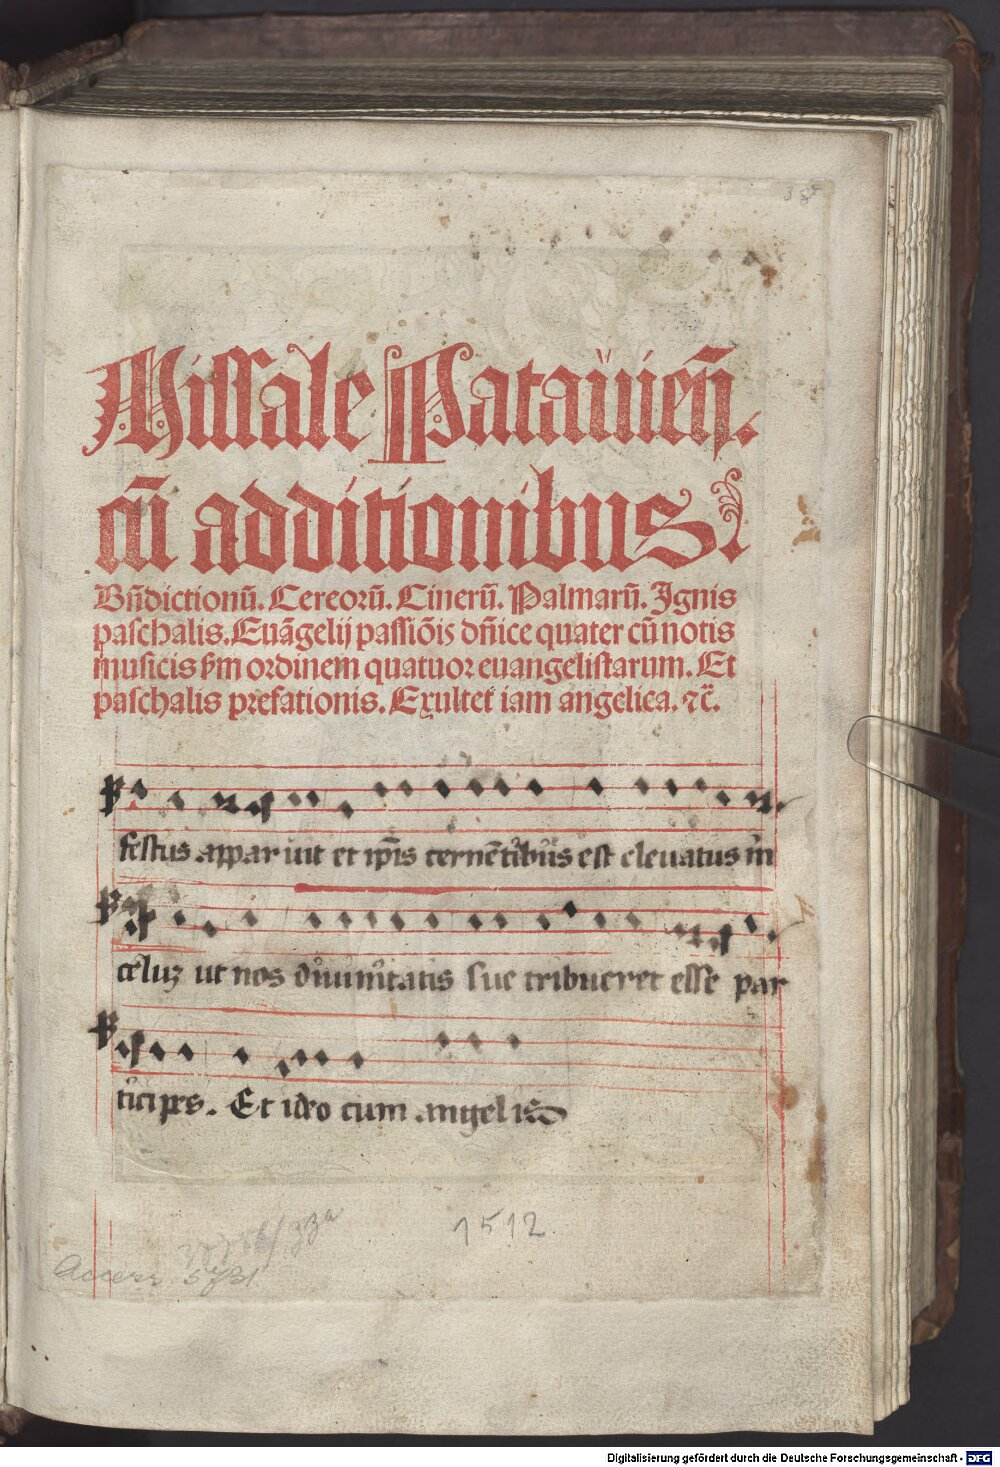 Missale Patauien̄.
cū additionibus.
Bn̄dictionū. Cereorū. Cinerū. Palmarū. Ignis
paschalis. Euāgelij passiōis dn̄ice quater cū notis
musicis ẜm ordinem quatuor euangelistarum. Et
paschalis prefationis. Exultet iam angelica. ⁊c̄.
festus apparuit et ip̄is cernētibus est eleuatus in
celuꝫ ut nos diuinitatis sue tribueret esse par
ticipes. Et ideo cum angelis
1512.
Access 5731
Digitalisierung gefördert durch die Deutsche Forschungsgemeinschaft - DFG